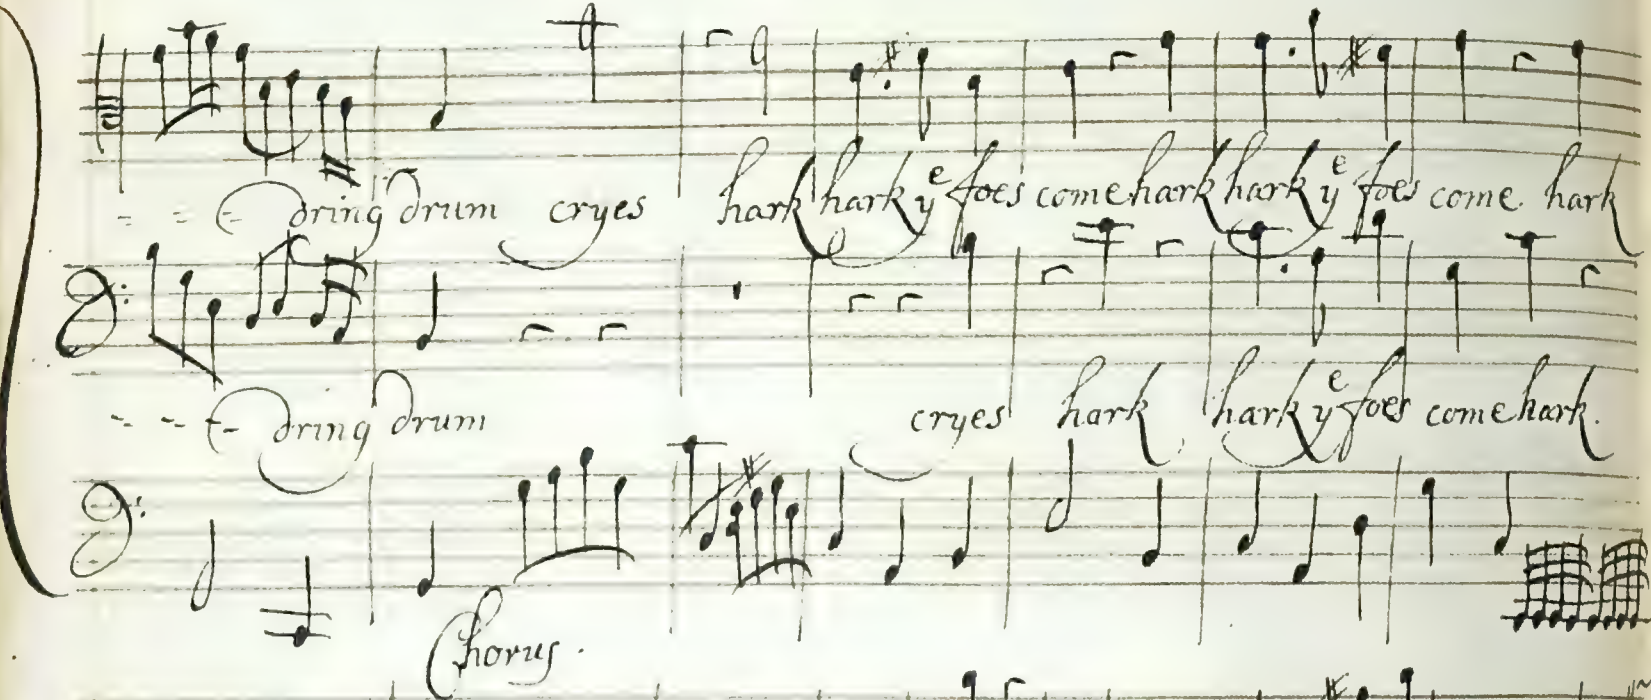 - - - dring drum cryes hark hark yᵉ foes come hark hark yᵉ foes come hark
- - - dring drum cryes hark hark yᵉ foes come hark.
Chorus.